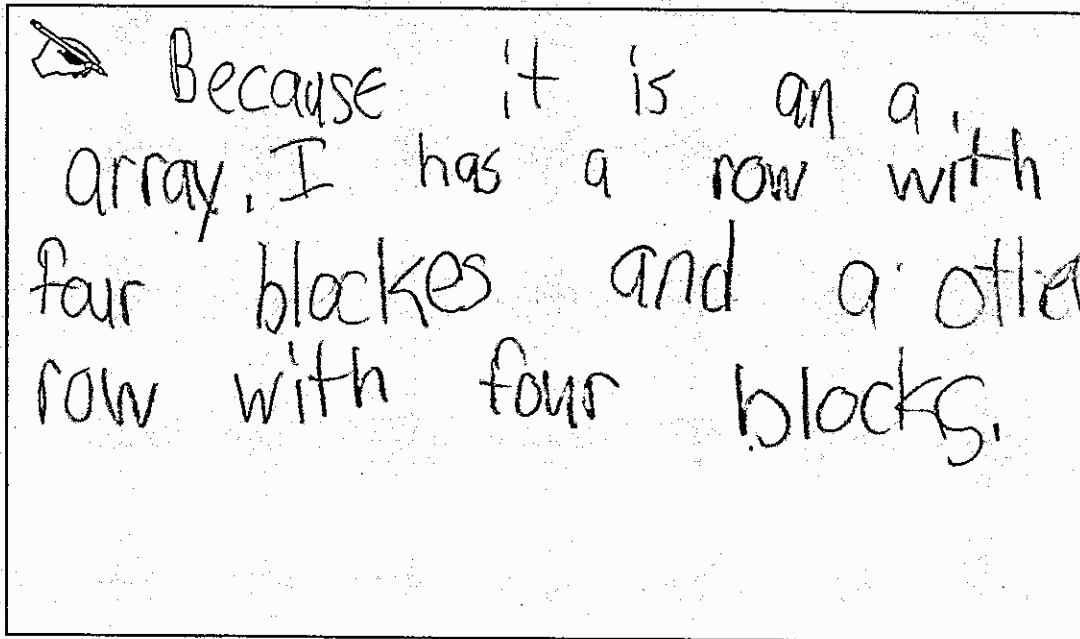 Because it is an a
array. I has a row with
four blockes and a othe
row with four blocks.